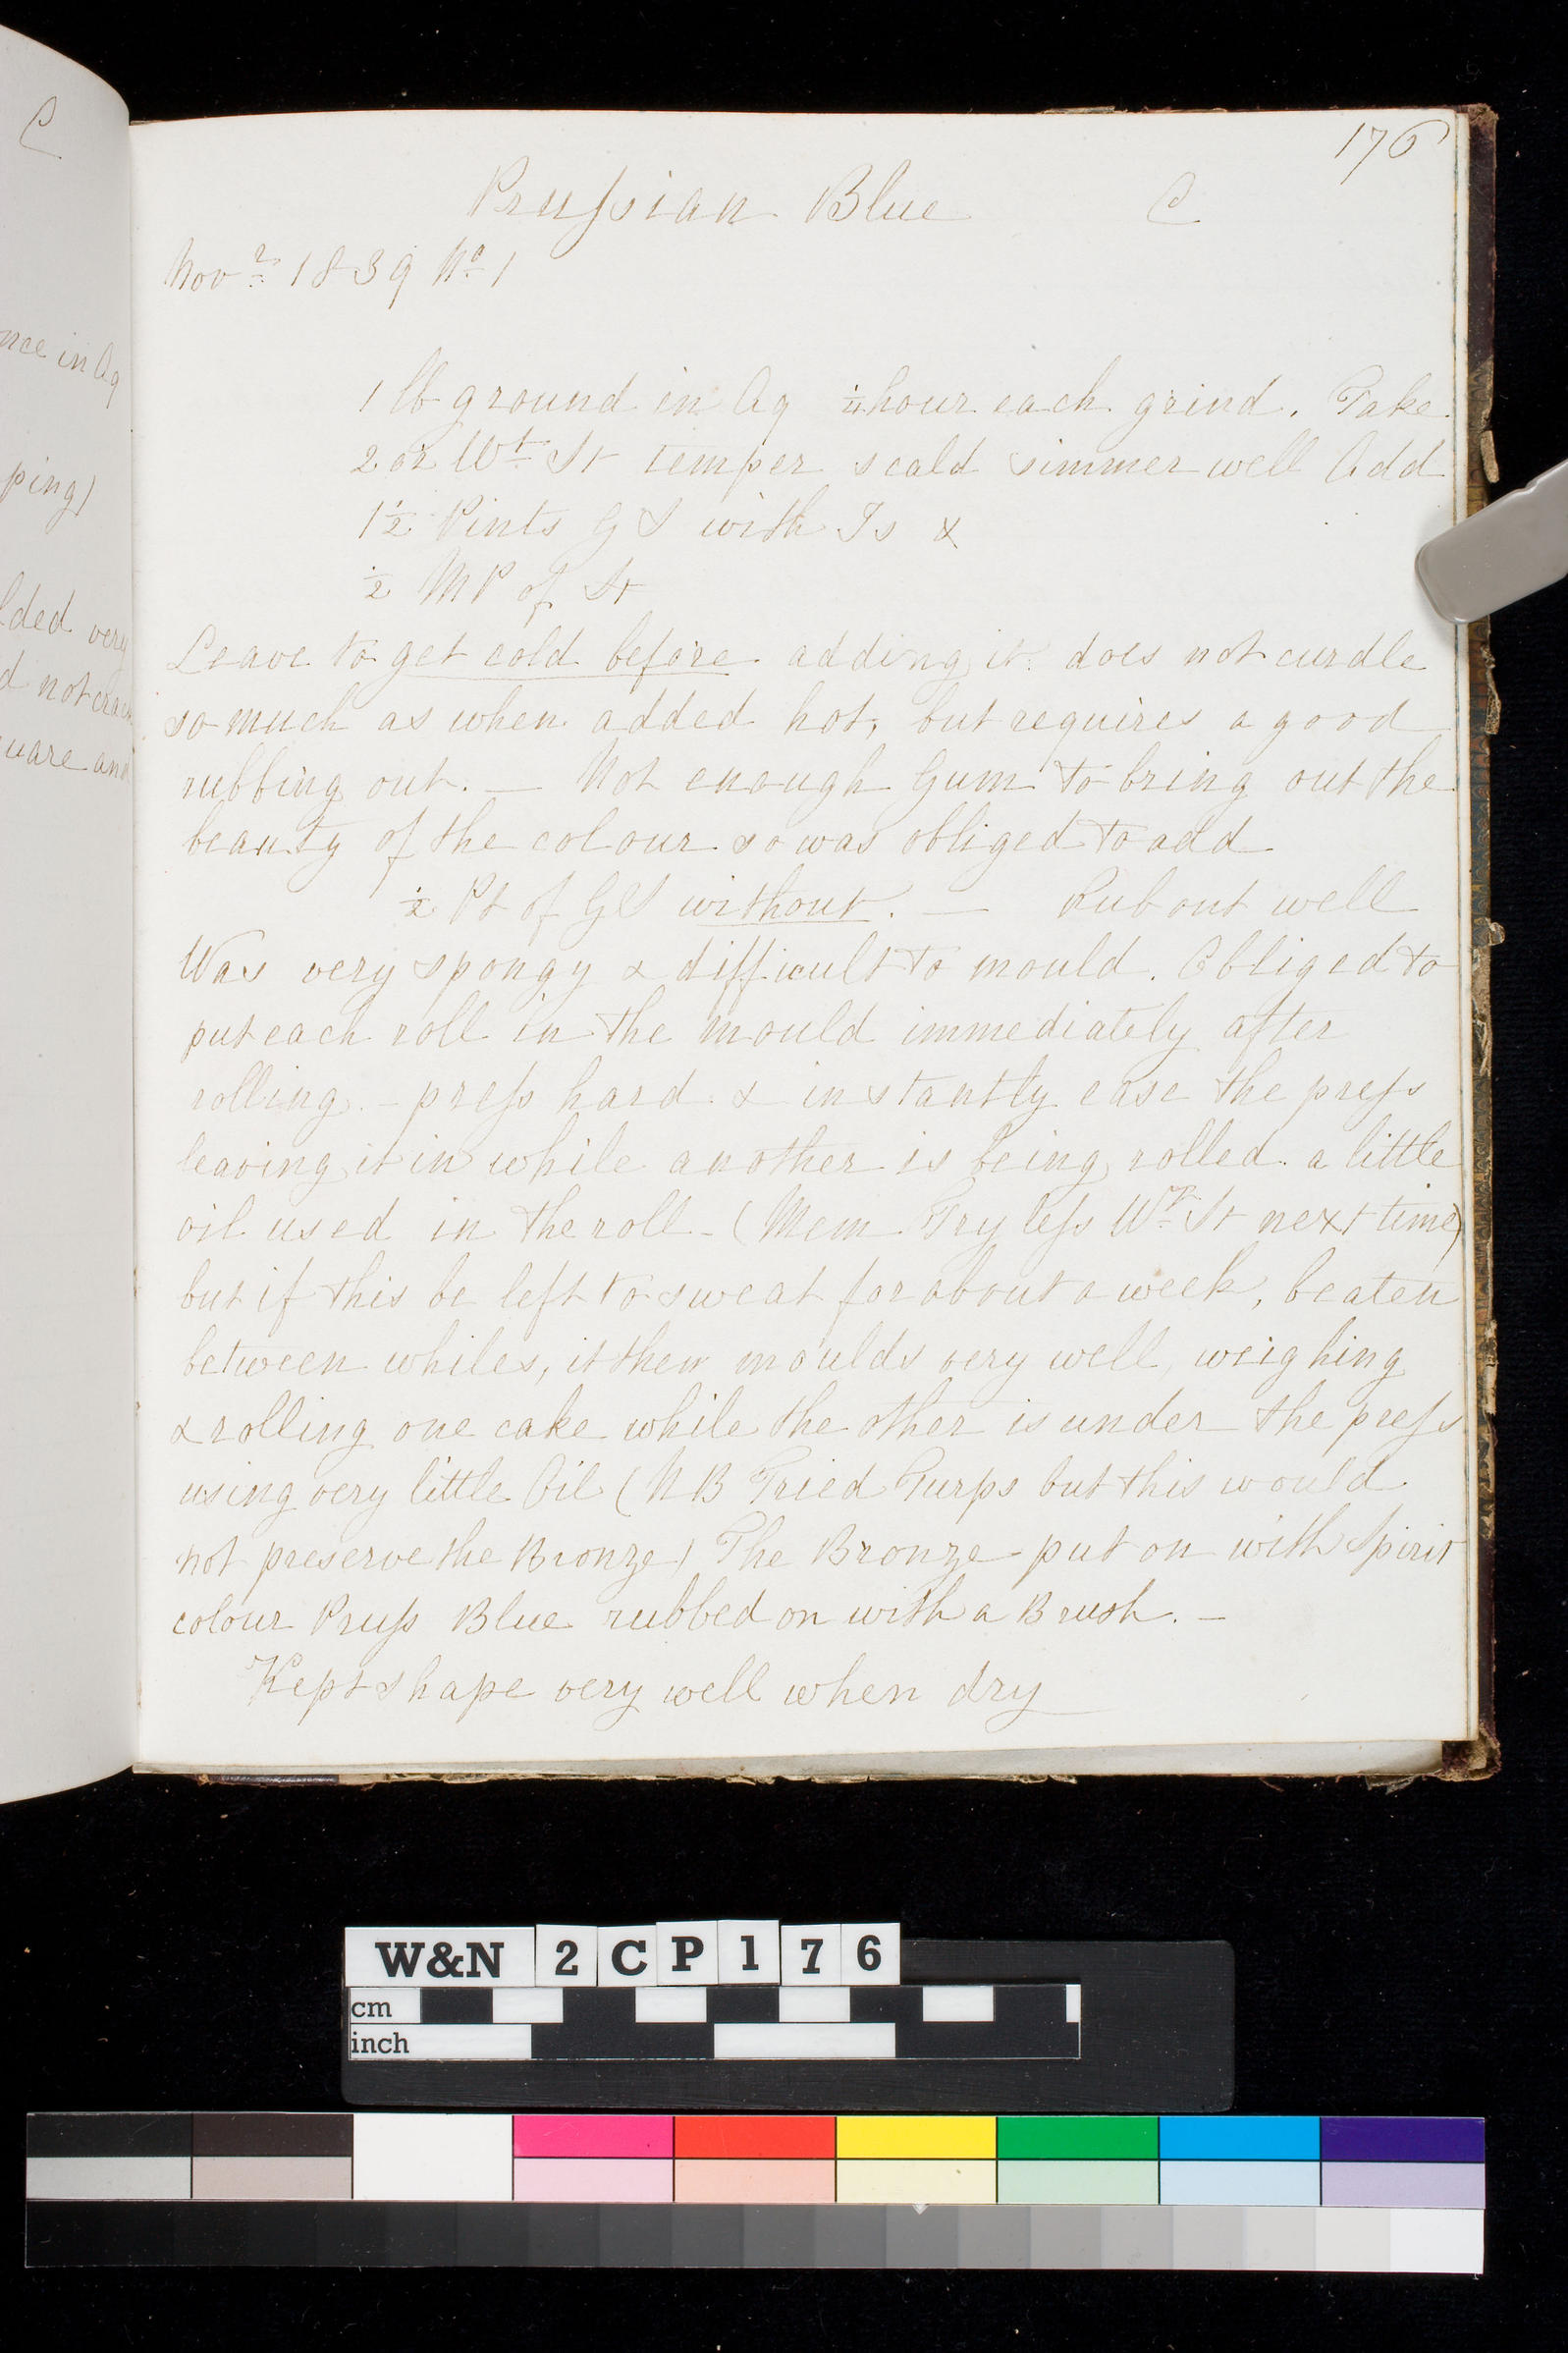 C
nce in Aq
ping)
lded very
d not crack
uare and
176
Prussian Blue C
Novr 1839 No 1
1 lb ground in Aq ¼ hour each grind. Take
2 oz Wt St temper scald simmer well Add
1½ Pints G S with Is &
½ M P of St
Leave to get cold before adding it. does not curdle
so much as when added hot, but requires a good
rubbing out. — Not enough Gum to bring out the
beauty of the colour so was obliged to add
½ Pt of G S without. — Rub out well
Was very spongy & difficult to mould. Obliged to
put each roll in the mould immediately after
rolling. - press hard. & instantly ease the press
leaving it in while another is being rolled. a little
oil used in the roll - (Mem Try less Wt St next time)
but if this be left to sweat for about a week, beaten
between whiles, it then moulds very well, weighing
& rolling one cake while the other is under the press
using very little Oil (N B Tried Turps but this would
not preserve the Bronze) The Bronze put on with Spirit
colour Pruss Blue rubbed on with a Brush. -
Kept shape very well when dry
W&N 2CP176
cm
inch